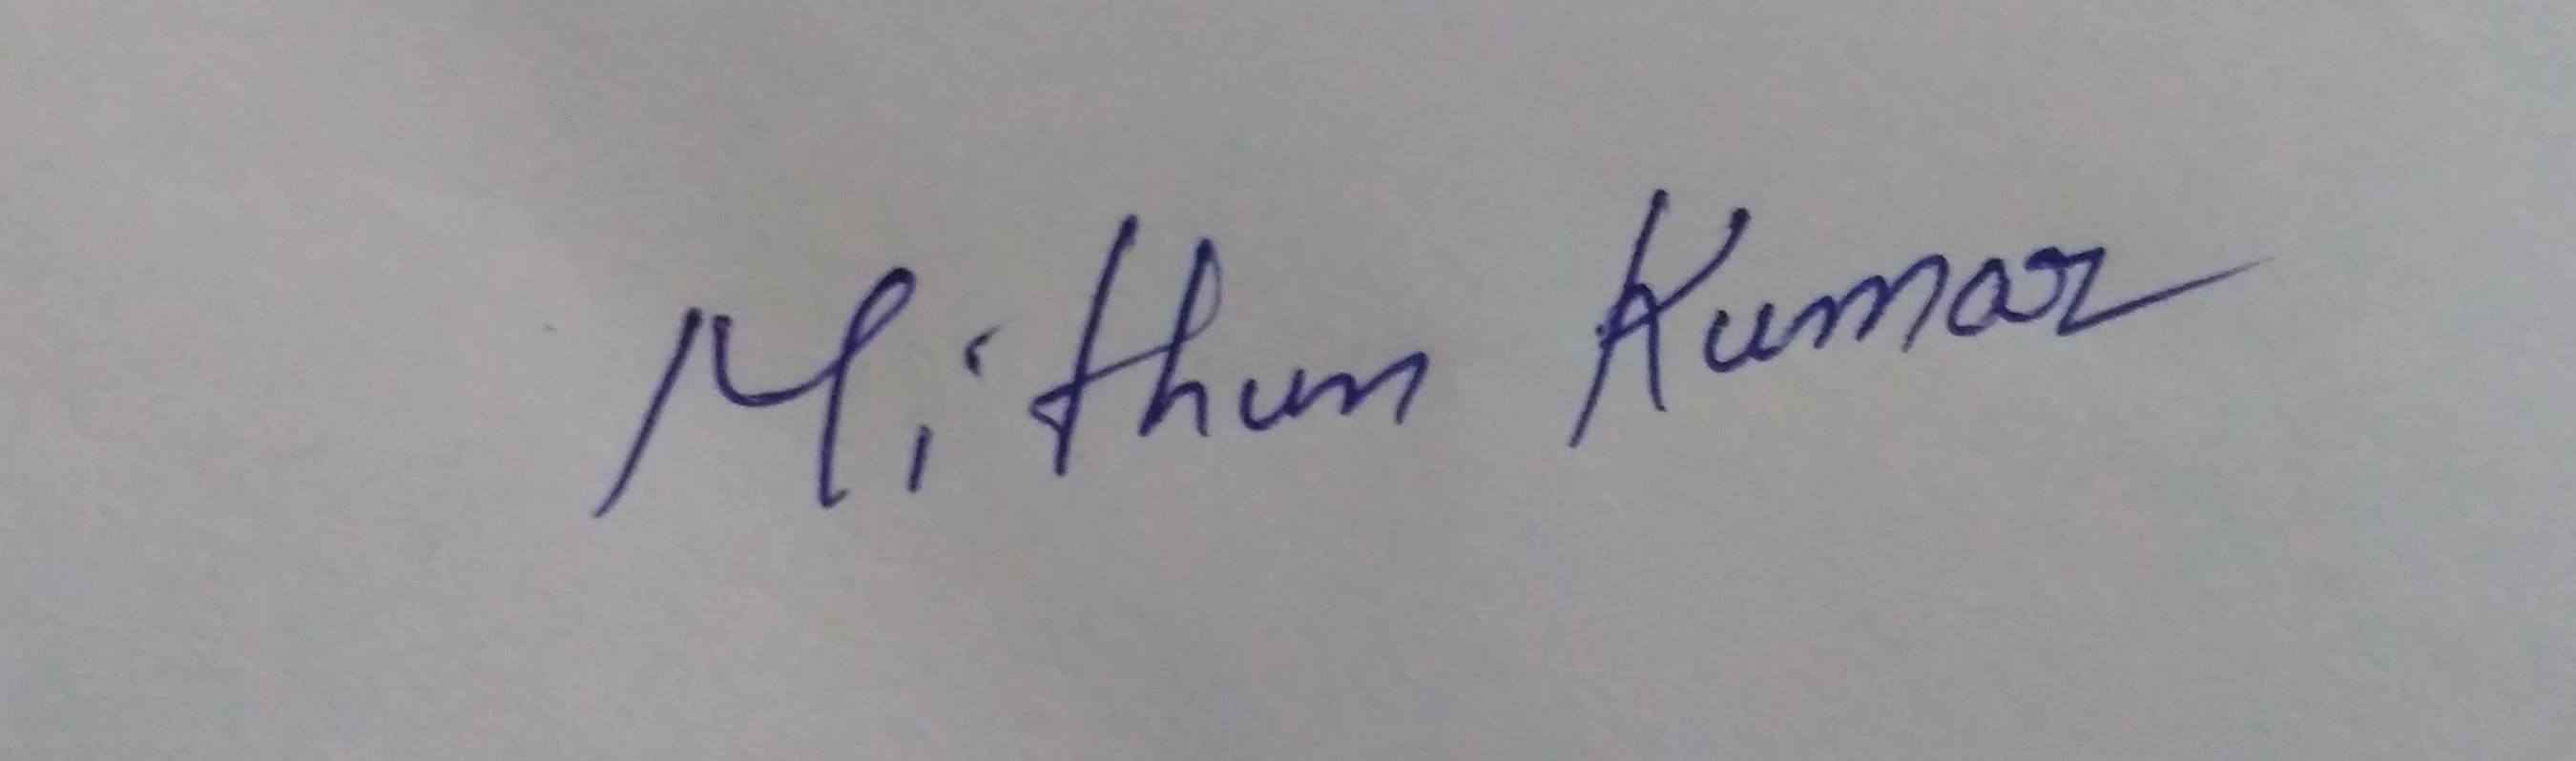 Mithun Kumar